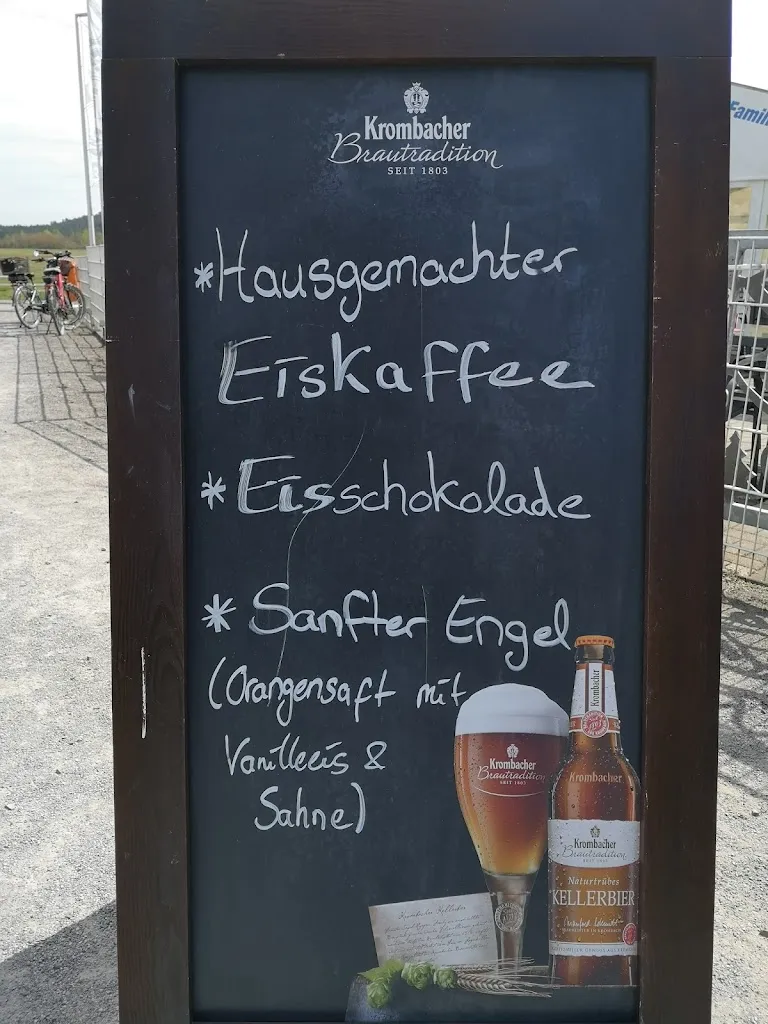 Krombacher
Brautradition
SEIT 1803
*Hausgemachter
Eiskaffee
*Eisschokolade
*Sanfter Engel
(Orangensaft mit
Vanilleeis &
Sahne)
Krombacher
Krombacher
Brautradition
SEIT 1803
Krombacher
Krombacher
Brautradition
SEIT 1803
Naturtrübes
KELLERBIER
Famil